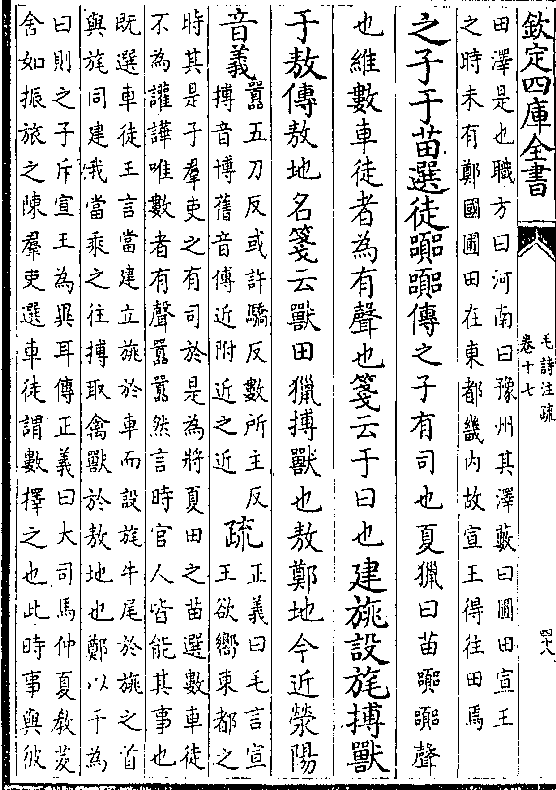 欽定四庫全書
毛詩注疏
卷十七
田澤是也職方曰河南曰豫州其澤藪曰圃田宣王
之時未有鄭國圃田在東都畿內故宣王得往田焉
之子于苗選徒嚻嚻傳之子有司也夏獵曰苗嚻嚻聲
也維數車徒者為有聲也箋云于曰也建旐設旄搏獸
于敖傳敖地名箋云獸田獵搏獸也敖鄭地今近滎陽
音義嚻五刀反或許驕反數所主反
搏音博舊音傅近附近之近
疏正義曰毛言宣
王欲嚮東都之
時其是子羣吏之有司於是為將夏田之苗選數車徒
不為讙譁唯數者有聲嚻嚻然言時官人皆能其事也
既選車徒王言當建立旐於車而設旄牛尾於旐之首
與旄同建我當乘之往搏取禽獸於敖地也鄭以于為
曰則之子斥宣王為異耳傳正義曰大司馬仲夏教茇
舍如振旅之陳羣吏選車徒謂數擇之也此時事與彼